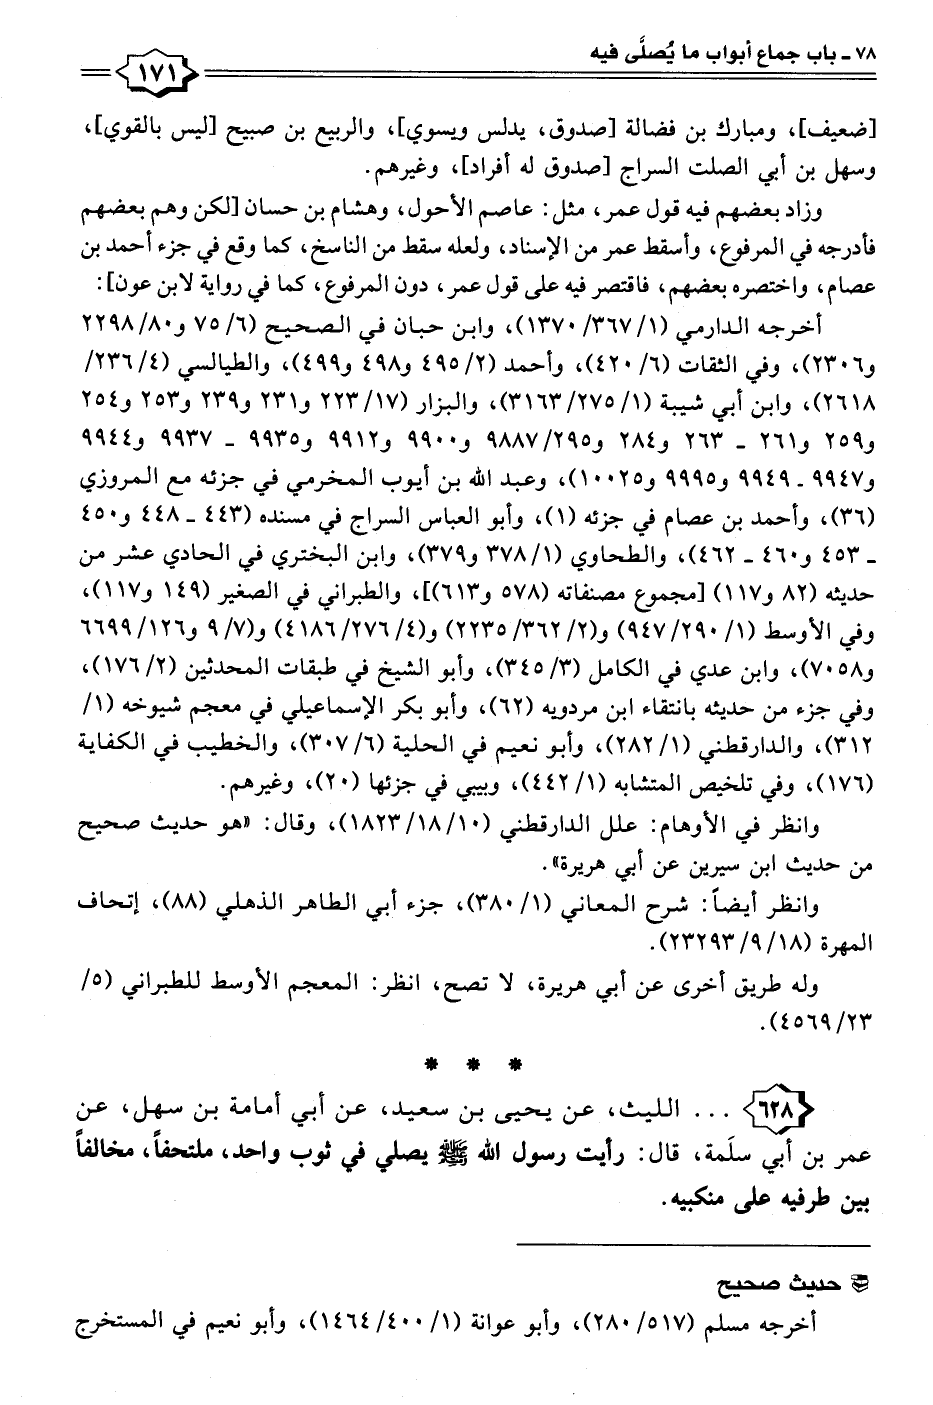 ٧٨ ـ باب جماع أبواب ما يُصلَّى فيه
١٧١
[ضعيف]، ومبارك بن فضالة [صدوق، يدلس ويسوي]، والربيع بن صبيح [ليس بالقوي]،
وسهل بن أبي الصلت السراج [صدوق له أفراد]، وغيرهم.
وزاد بعضهم فيه قول عمر، مثل: عاصم الأحول، وهشام بن حسان [لكن وهم بعضهم
فأدرجه في المرفوع، وأسقط عمر من الإسناد، ولعله سقط من الناسخ، كما وقع في جزء أحمد بن
عصام، واختصره بعضهم، فاقتصر فيه على قول عمر، دون المرفوع، كما في رواية لابن عون]:
أخرجه الدارمي (١/ ٣٦٧/ ١٣٧٠)، وابن حبان في الصحيح (٦/ ٧٥ و٨٠/ ٢٢٩٨
و٢٣٠٦)، وفي الثقات (٦/ ٤٢٠)، وأحمد (٢/ ٤٩٥ و٤٩٨ و٤٩٩)، والطيالسي (٤/ ٢٣٦/
٢٦١٨)، وابن أبي شيبة (١/ ٢٧٥/ ٣١٦٣)، والبزار (١٧/ ٢٢٣ و٢٣١ و٢٣٩ و٢٥٣ و٢٥٤
و٢٥٩ و٢٦١ ـ ٢٦٣ و٢٨٤ و٢٩٥/ ٩٨٨٧ و٩٩٠٠ و٩٩١٢ و٩٩٣٥ ـ ٩٩٣٧ و٩٩٤٤
و٩٩٤٧ ـ ٩٩٤٩ و٩٩٩٥ و١٠٠٢٥)، وعبد الله بن أيوب المخرمي في جزئه مع المروزي
(٣٦)، وأحمد بن عصام في جزئه (١)، وأبو العباس السراج في مسنده (٤٤٣ ـ ٤٤٨ و٤٥٠
ـ ٤٥٣ و٤٦٠ ـ ٤٦٢)، والطحاوي (١/ ٣٧٨ و٣٧٩)، وابن البختري في الحادي عشر من
حديثه (٨٢ و١١٧) [مجموع مصنفاته (٥٧٨ و٦١٣)]، والطبراني في الصغير (١٤٩ و١١٧)،
وفي الأوسط (١/ ٢٩٠/ ٩٤٧) و(٢/ ٣٦٢/ ٢٢٣٥) و(٤/ ٢٧٦/ ٤١٨٦) و(٧/ ٩ و١٢٦/ ٦٦٩٩
و٧٠٥٨)، وابن عدي في الكامل (٣/ ٣٤٥)، وأبو الشيخ في طبقات المحدثين (٢/ ١٧٦)،
وفي جزء من حديثه بانتقاء ابن مردويه (٦٢)، وأبو بكر الإسماعيلي في معجم شيوخه (١/
٣١٢)، والدارقطني (١/ ٢٨٢)، وأبو نعيم في الحلية (٦/ ٣٠٧)، والخطيب في الكفاية
(١٧٦)، وفي تلخيص المتشابه (١/ ٤٤٢)، وبيبي في جزئها (٢٠)، وغيرهم.
وانظر في الأوهام: علل الدارقطني (١٠/ ١٨/ ١٨٢٣)، وقال: «هو حديث صحيح
من حديث ابن سيرين عن أبي هريرة».
وانظر أيضاً: شرح المعاني (١/ ٣٨٠)، جزء أبي الطاهر الذهلي (٨٨)، إتحاف
المهرة (١٨/ ٩/ ٢٣٢٩٣).
وله طريق أخرى عن أبي هريرة، لا تصح، انظر: المعجم الأوسط للطبراني (٥/
٢٣/ ٤٥٦٩).
* * *
٦٢٨ ... الليث، عن يحيى بن سعيد، عن أبي أمامة بن سهل، عن
عمر بن أبي سلَمة، قال: رأيت رسول الله ﷺ يصلي في ثوب واحد، ملتحفاً، مخالفاً
بين طرفيه على منكبيه.
حديث صحيح
أخرجه مسلم (٥١٧/ ٢٨٠)، وأبو عوانة (١/ ٤٠٠/ ١٤٦٤)، وأبو نعيم في المستخرج